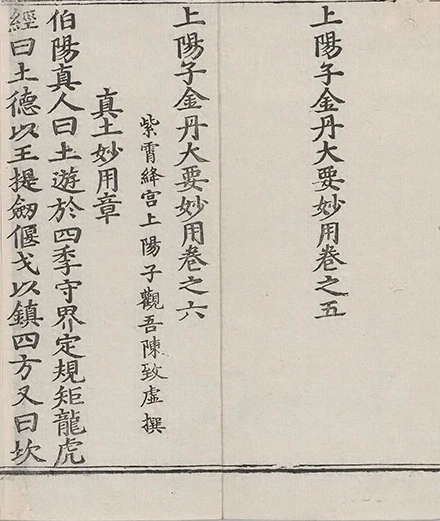 上陽子金丹大要妙用卷之五
上陽子金丹大要妙用卷之六
紫霄絳宫上陽子觀吾陳致虛撰
真土妙用章
伯陽真人曰土遊於四季守界定規矩龍虎
經曰土德以王提劒偃戈以鎮四方又曰坎